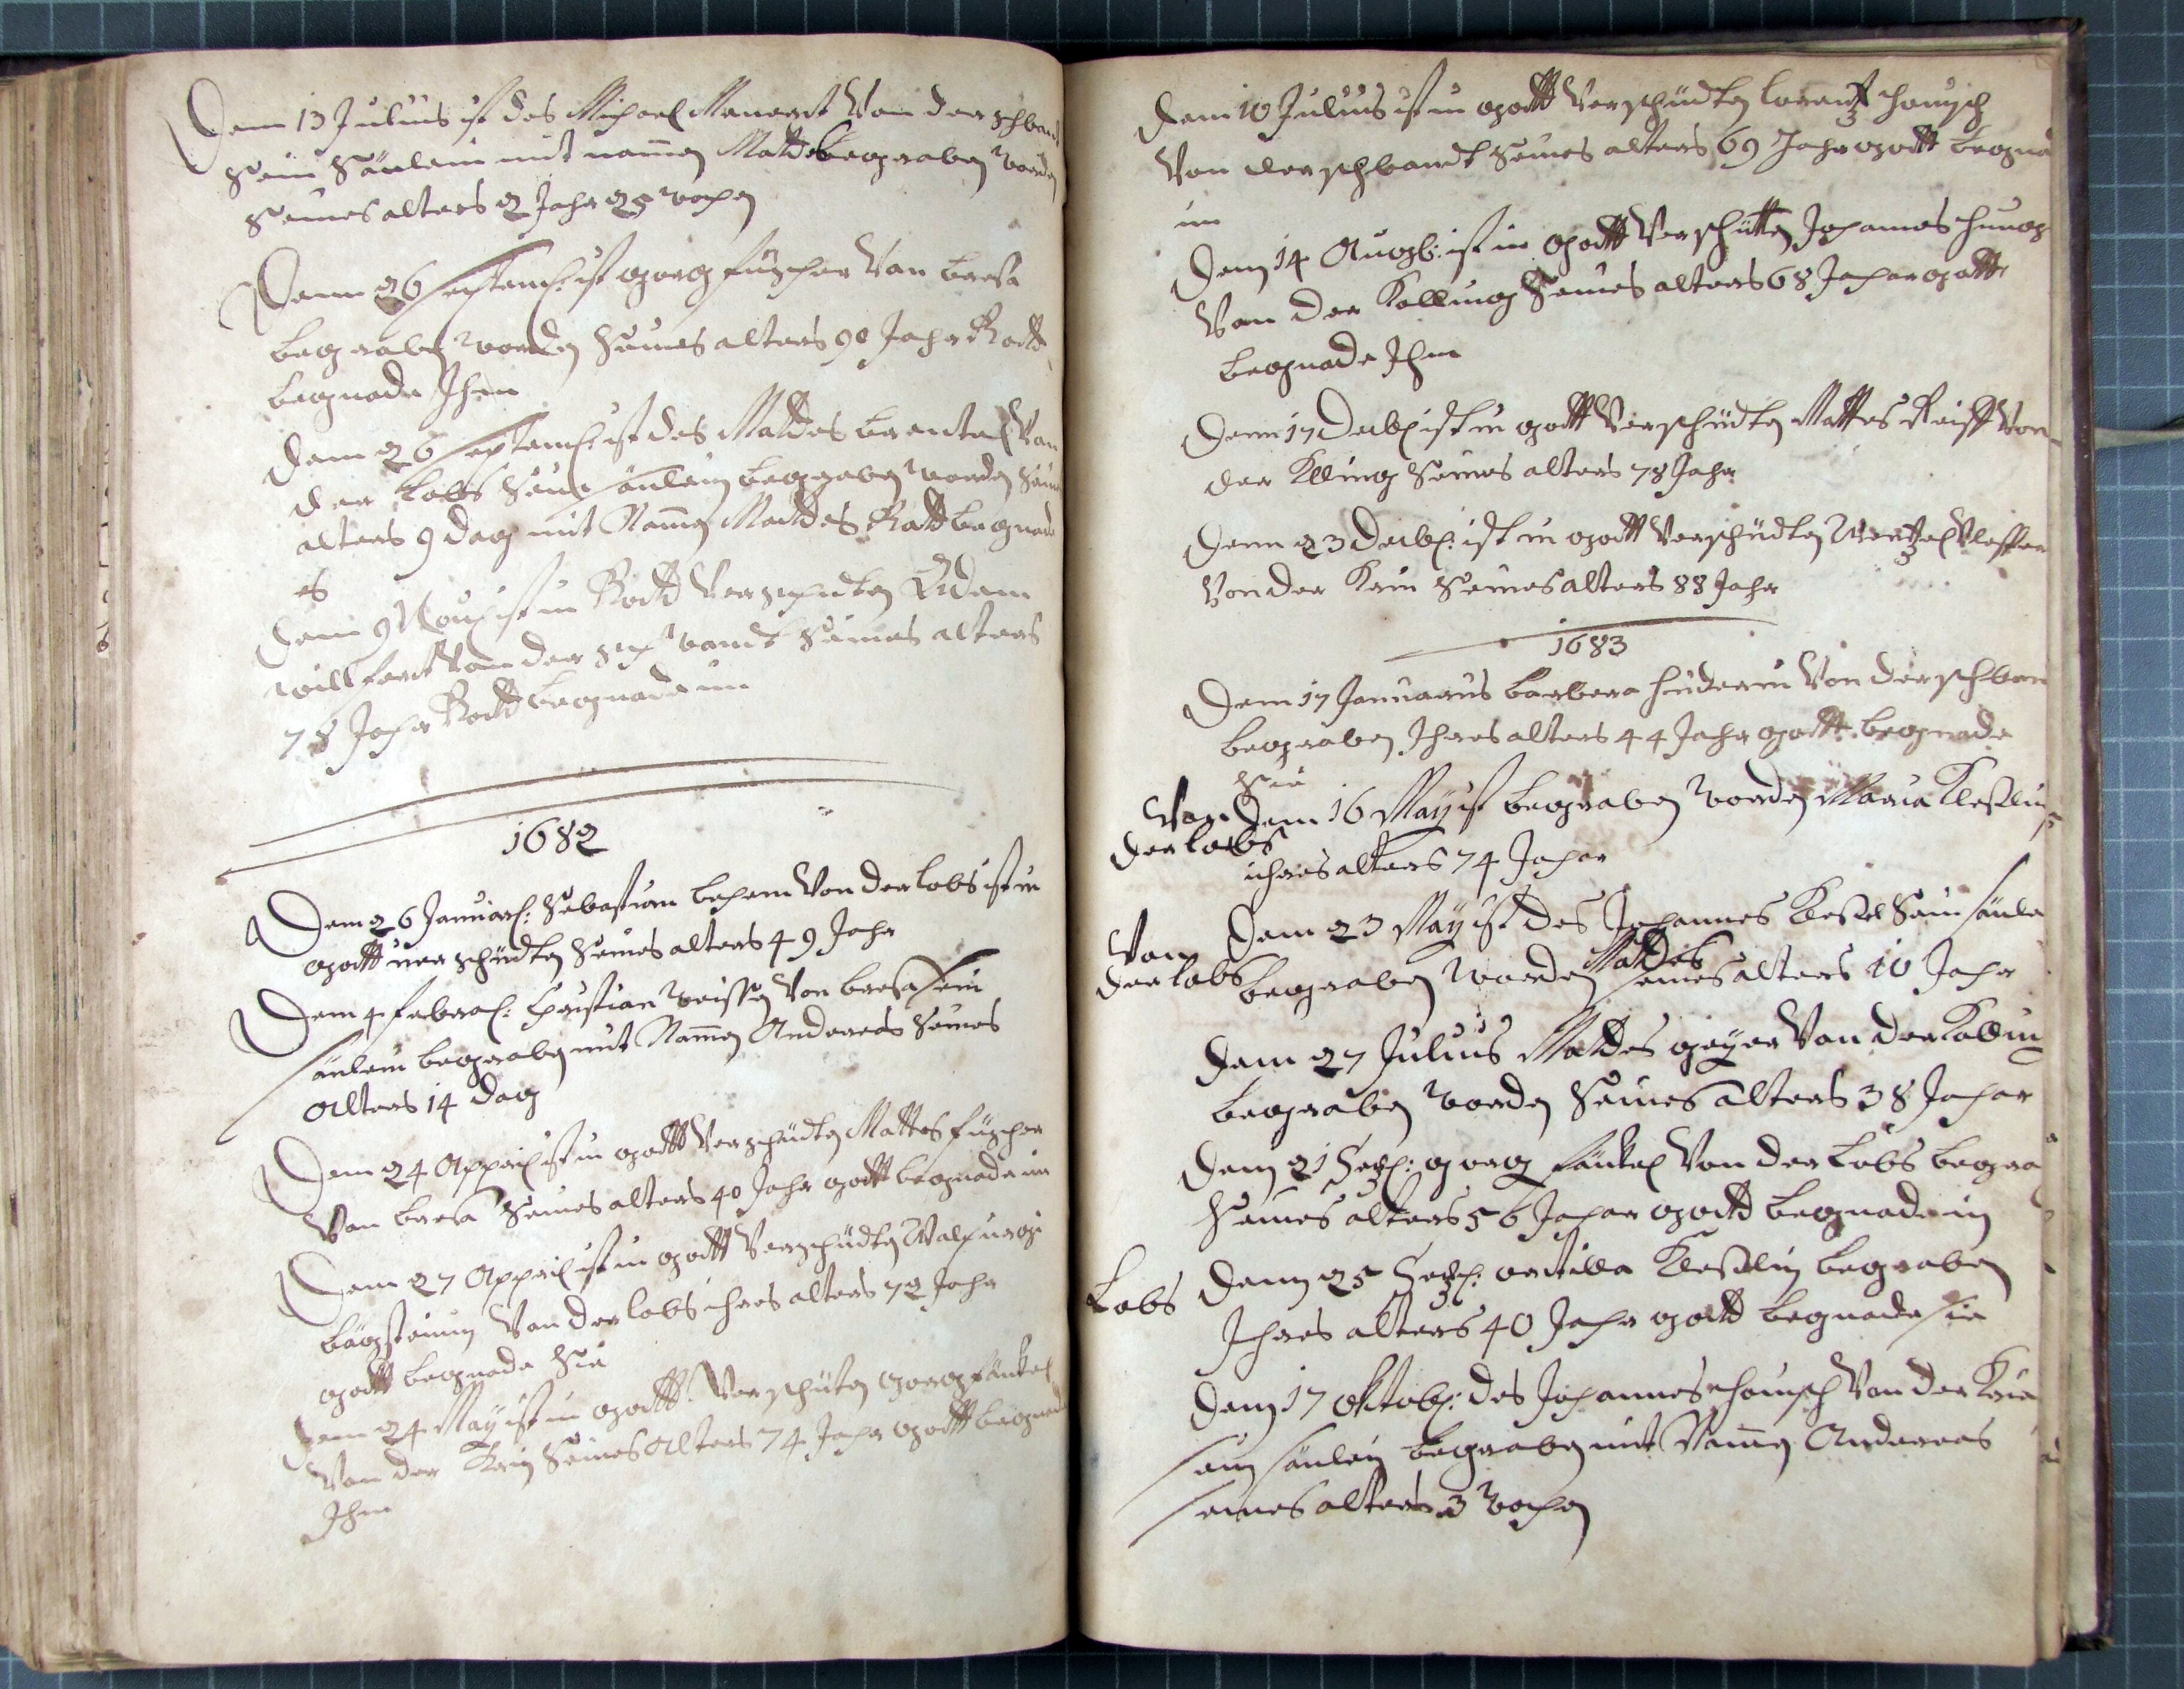 Dem 13 Julius ist des Michael Manerct Von der schband
sein Sönlein mit namen Mattes begraben worden
seines alters 2 Jahr 25 wochen
Denn 26 septemb: ist georg fuscher Von bresa
begraben worden seines alters 90 Jahr Gott
begnade Ihm
Dem 26 septemb: ist des Mattes brentel Von
der Lobs sein sönlein begraben worden sein
alters 9 dag mit Namen Mattes Gott begnade
es
Dem 9 Noub ist in Gott Verschidten Adam
willfert Von der schwandt seines alters
78 Jahr Gott begnade im
1682
Dem 26 Januar: Sebastian behem Von der lobs ist in
gott verschidten seines alters 49 Jahr
Dem 4 febera: Christian weissen Von bresa sein
sönlein begraben mit Namen Andereas seines
alters 14 dag
Dem 24 Appril ist in gott Verschidten Mattes füscher
Von bresa seines alters 40 Jahr gott begnade im
Dem 27 Appril ist in gott Verschidten Walpurgi
Von der lobs ihres alters 72 Jahr
gott begnade sie
Dem 24 May ist in gott Verschiten georg fänkel
Von der Krin seines alters 74 Jahr gott begnade
Ihm
Dem 10 Julius ist in gott Verschidten lorentz hönisch
Von der schbandt seines alters 69 Jahr gott begna
im
Dem 14 Augb: ist in gott Verschitten Johannes
Von der Kolling seines alters 68 Jahar gott
begnade Ihm
Denn 17 Decb ist in gott Verschidten Mattes Reiff Von
der Klling seines alters 78 Jahr
Denn 23 Decb: ist in gott Verschidten Wentzel
Von der Krin seines alters 88 Jahr
1683
Dem 17 Januarus barbera Von der schban
begraben Ihres alters 44 Jahr gott begnade
sie
Von Dem 16 May ist begraben worden Maria Keßlin
der lobs
ihres alters 74 Jahar
Von Dem 23 May ist des Johannes Keßel sein sönle
der lobs begraben worden Mattes seines alters 10 Jahr
Dem 27 Julius Mattes geyer Von der Kolling
begraben worden seines alters 38 Jahar
Dem 21 georg fänkel Von der Lobs begra
seines alters 56 Jahar gott begnade in
Lobs Denn 25 ortilla Keßlin begraben
Ihres alters 40 Jahr gott begnade sie
Dem 17 oktob: des Johannes hönisch Von der Krin
sein sönlein begraben mit Namen Andereas
seines alters 3 wochen